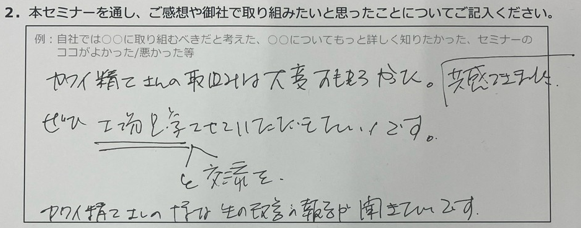 2. 本セミナーを通し、ご感想や御社で取り組みたいと思ったことについてご記入ください。
例:自社では○○に取り組むべきだと考えた、○○についてもっと詳しく知りたかった、セミナーの
ココがよかった/悪かった等
カワイ精工さんの取組みは大変おもしろかった。共感できました
ぜひ工場見学させていただきたいです。
と交流を。
カワイ精工さんの様な生の改善の報告が聞きたいです。